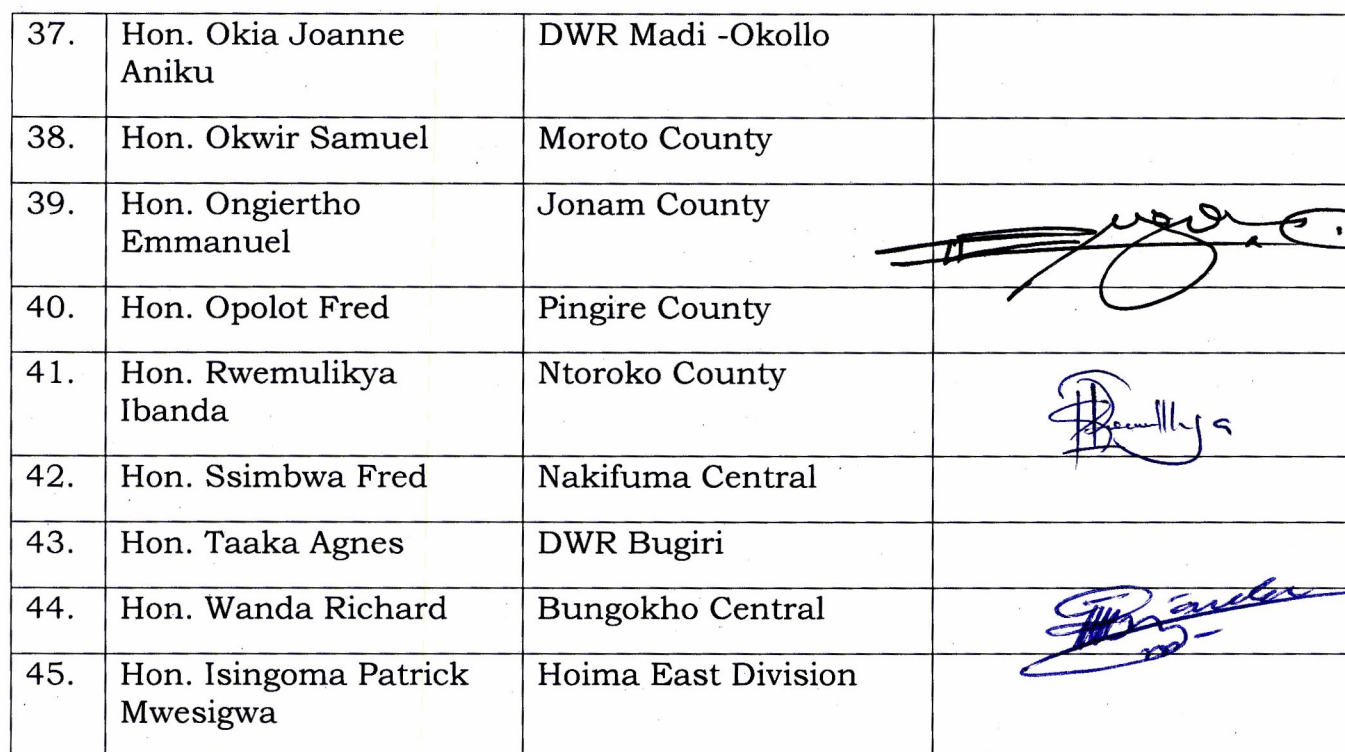 37. Hon. Okia Joanne DWR Madi -Okollo
Aniku
38. Hon. Okwir Samuel Moroto County
39. Hon. Ongiertho Jonam County
Emmanuel
40. Hon. Opolot Fred Pingire County
41. Hon. Rwemulikya Ntoroko County
Ibanda
42. Hon. Ssimbwa Fred Nakifuma Central
43. Hon. Taaka Agnes DWR Bugiri
44. Hon. Wanda Richard Bungokho Central
45. Hon. Isingoma Patrick Hoima East Division
Mwesigwa